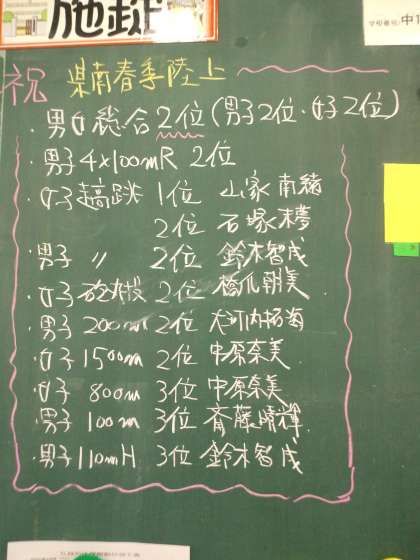 施錠
学校番号 中1
祝 県南春季陸上
・男女総合2位(男子2位・女子2位)
・男子4×100mR 2位
・女子走高跳 1位 山家南緒
2位 石塚
・男子 〃 2位 鈴木智成
・女子砲丸投 2位 橋爪朝美
・男子200m 2位 大河内拓海
・女子1500m 2位 中原奈美
・女子 800m 3位 中原奈美
・男子 100m 3位 斉藤晴輝
・男子110mH 3位 鈴木智成